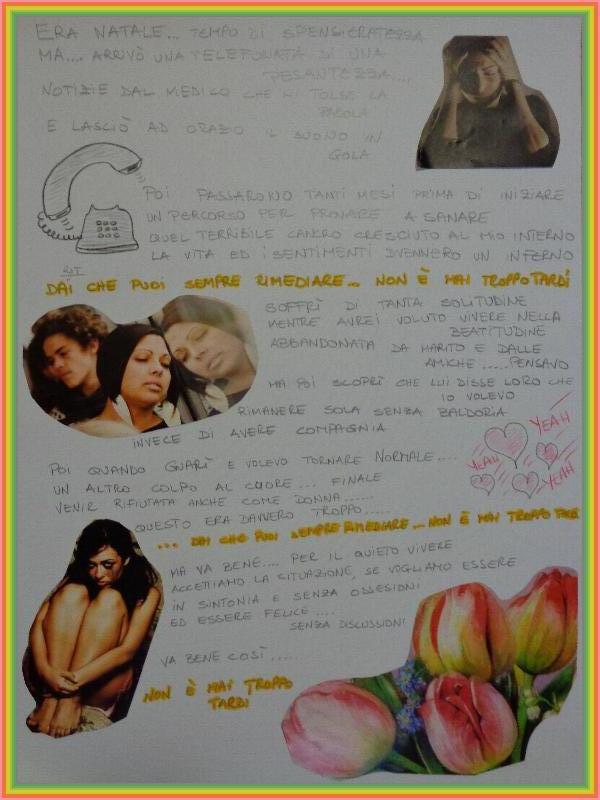 ERA NATALE... TEMPO DI SPENSIERATEZZA
MA.... ARRIVÒ UNA TELEFONATA DI UNA
PESANTEZZA....
NOTIZIE DAL MEDICO CHE MI TOLSE LA
PAROLA
E LASCIÒ AD ORAZIO IL SUONO IN
GOLA
POI PASSARONO TANTI MESI PRIMA DI INIZIARE
UN PERCORSO PER PROVARE A SANARE
QUEL TERRIBILE CANCRO CRESCIUTO AL MIO INTERNO
LA VITA ED I SENTIMENTI DVENNERO UN INFERNO
RIT.
DAI CHE PUOI SEMPRE RIMEDIARE... NON È MAI TROPPO TARDI
SOFFRÌ DI TANTA SOLITUDINE
MENTRE AVREI VOLUTO VIVERE NELLA
BEATITUDINE
ABBANDONATA DA MARITO E DALLE
AMICHE .....PENSAVO
MA POI SCOPRÌ CHE LUI DISSE LORO CHE
IO VOLEVO
RIMANERE SOLA SENZA BALDORIA
INVECE DI AVERE COMPAGNIA
YEAH
YEAH
YEAH
POI QUANDO GUARÌ E VOLEVO TORNARE NORMALE....
UN ALTRO COLPO AL CUORE... FINALE
VENIR RIFIUTATA ANCHE COME DONNA......
QUESTO ERA DAVVERO TROPPO.....
... DAI CHE PUOI SEMPRE RIMEDIARE... NON È MAI TROPPO TARDI
MA VA BENE.... PER IL QUIETO VIVERE
ACCETTIAMO LA SITUAZIONE, SE VOGLIAMO ESSERE
IN SINTONIA E SENZA OSSESIONI
ED ESSERE FELICE ....
SENZA DISCUSSIONI
VA BENE COSÌ .....
NON È MAI TROPPO
TARDI